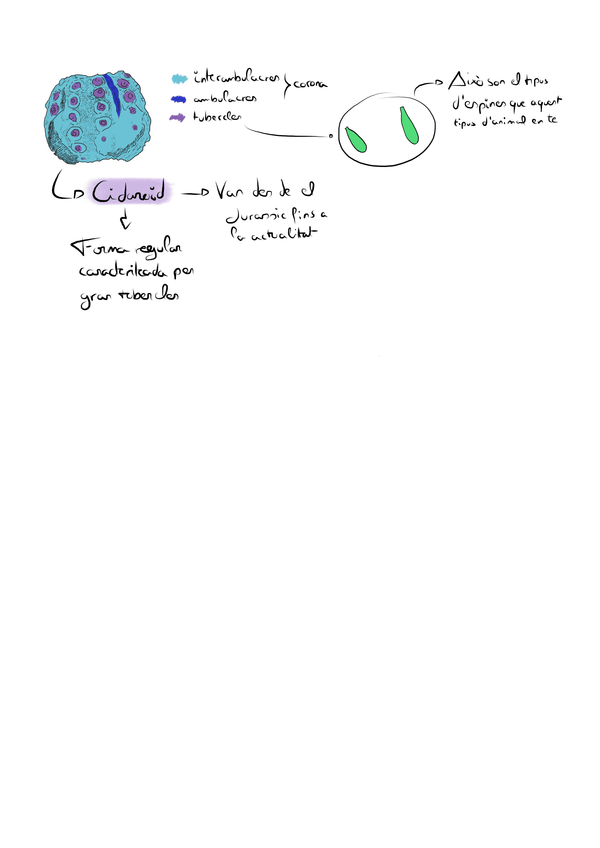 interambulacres
ambulacres
tubercles
corona
Això son el tipus
d'espines que aquest
tipus d'animal en te
Cidaroid
Van des de el
Jurassic fins a
la actualitat
Forma regular
caracteritzada per
gran tubercles